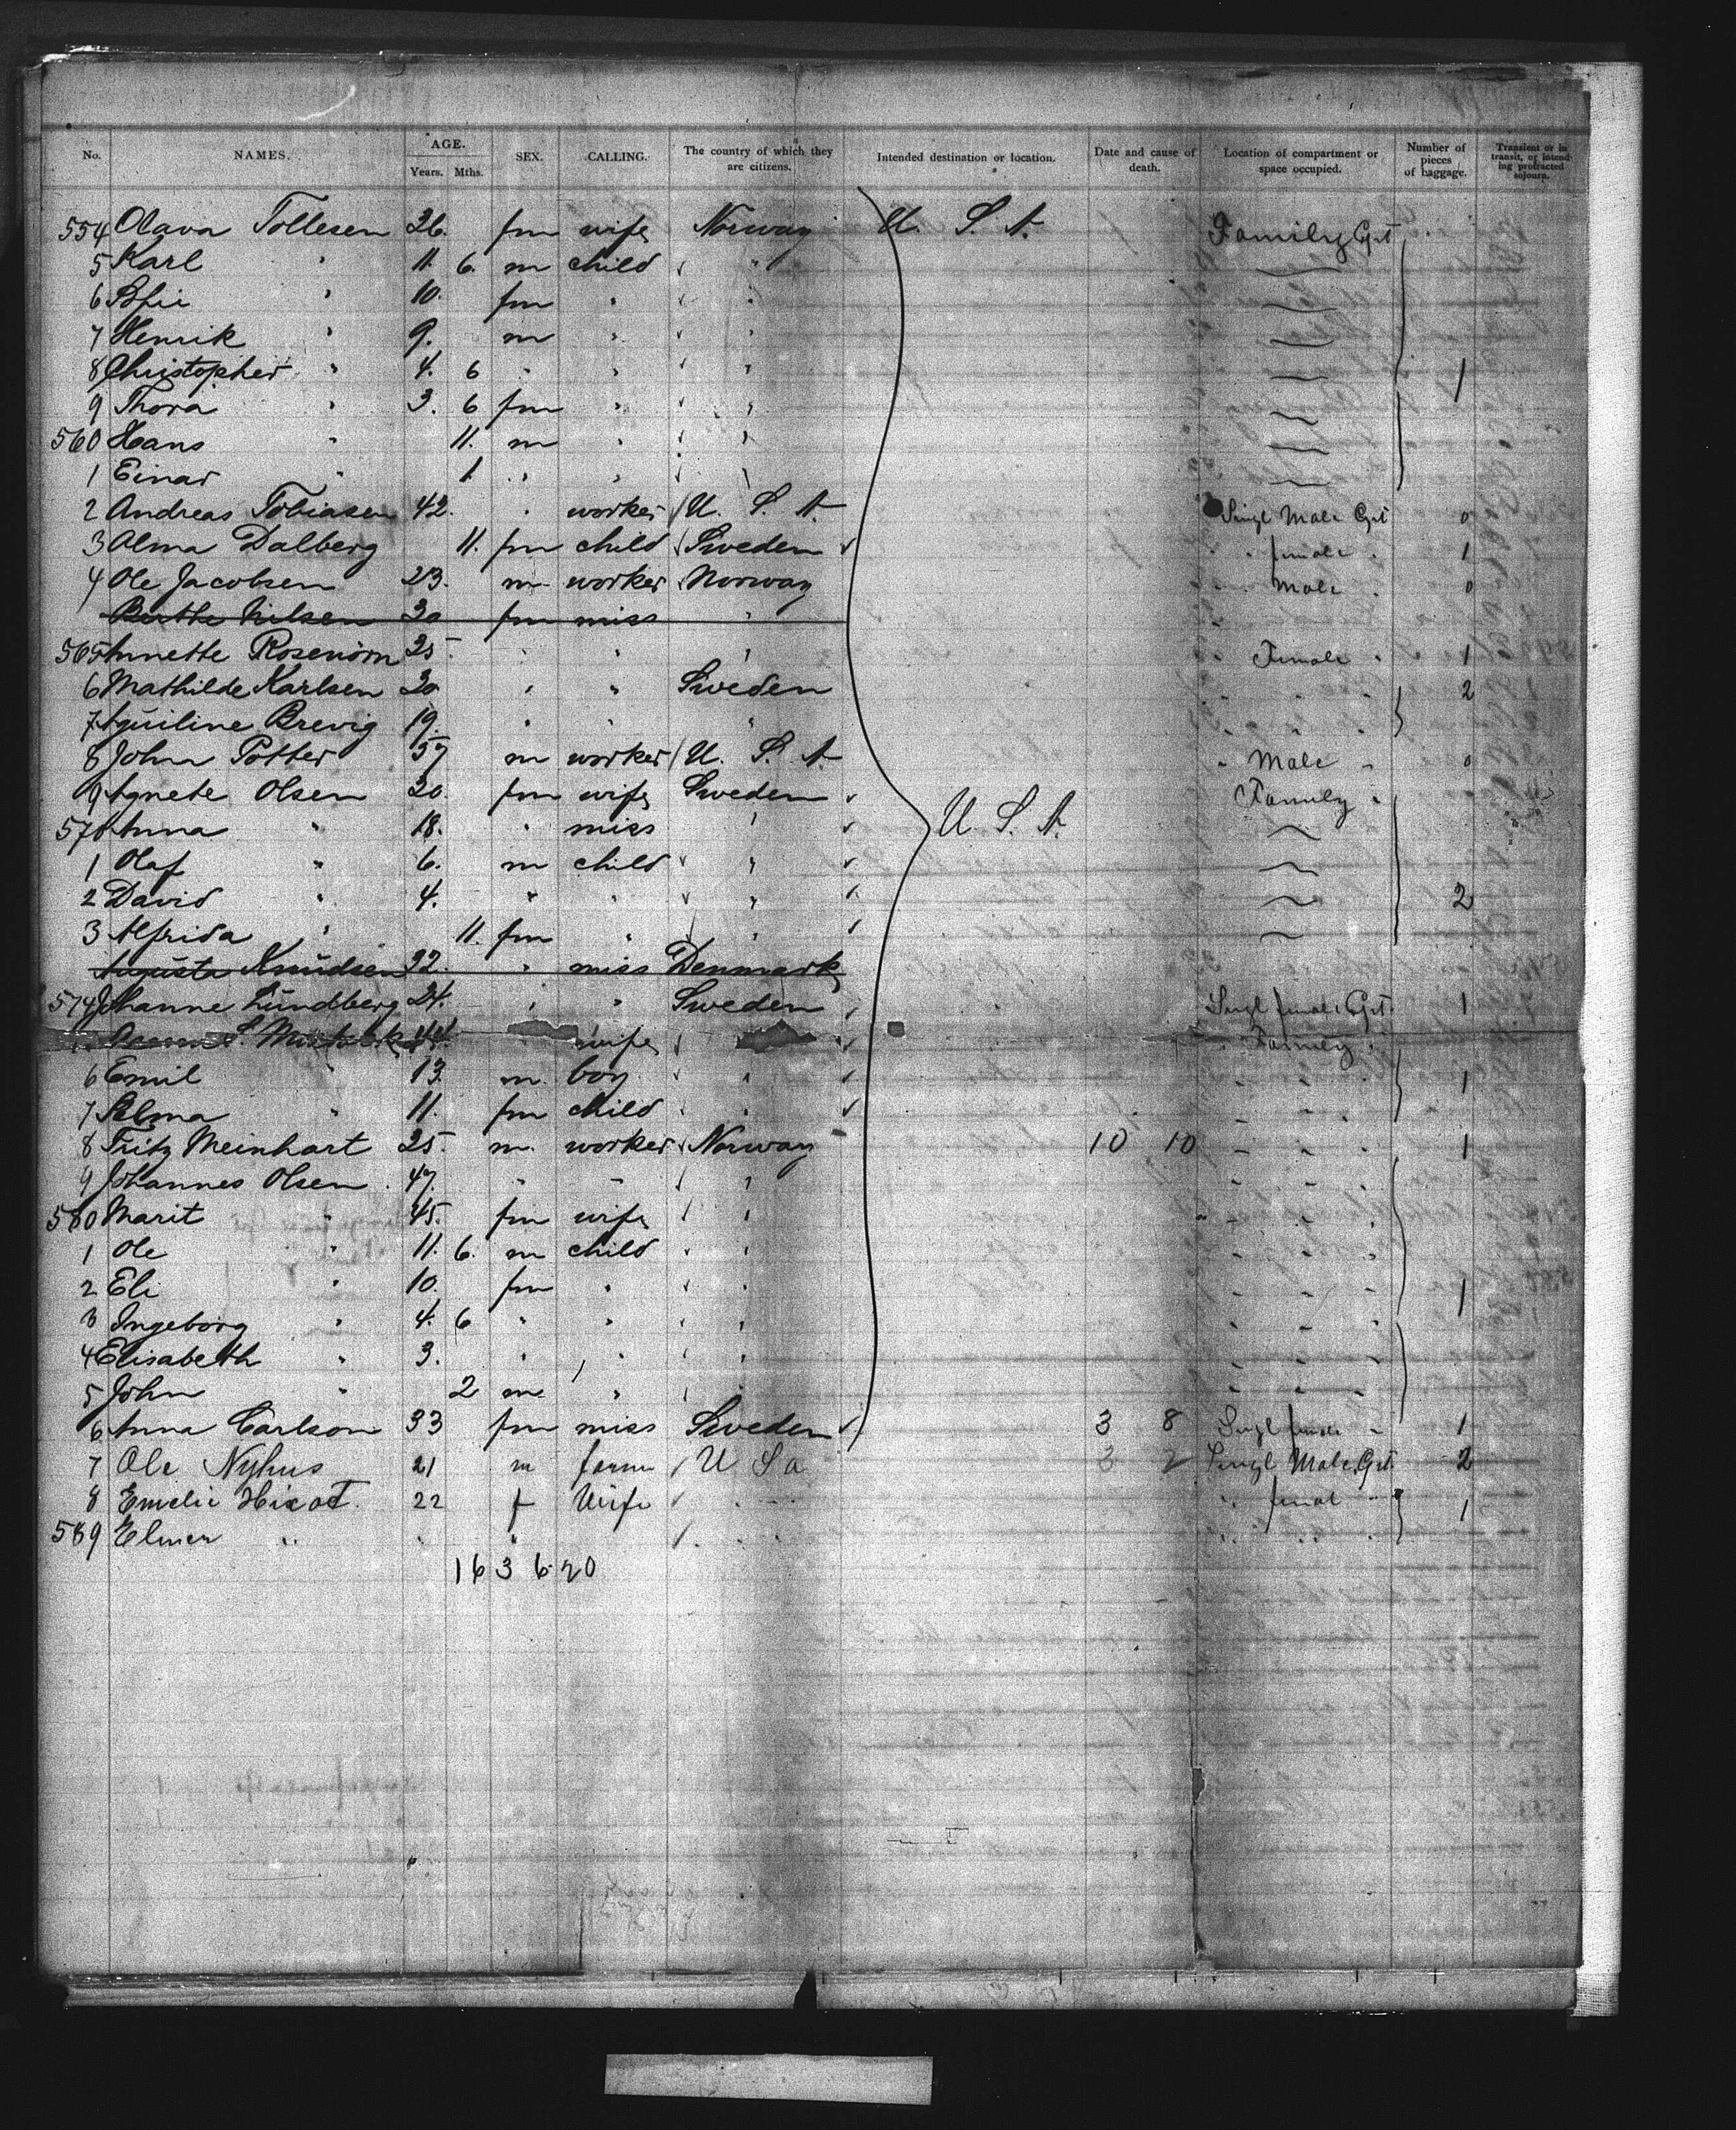 No. NAMES. AGE. Years. Mths. SEX. CALLING. The country of which they are citizens. Intended destination or location. Date and cause of death. Location of compartment or space occupied. Number of pieces of baggage. Transient or in transit, or intending protracted sojourn.
554 Olava Tollesen 36. fm wife Norway U. S. A. Family Cpt
5 Karl " 11. 6. m child " "
6 Sofie " 10. fm " " "
7 Henrik " 9. m " " "
8 Christopher " 4. 6 " " " " 1
9 Thora " 3. 6 fm " " "
560 Hans " 11. m " " "
1 Einar " 1 " " " "
2 Andreas Tobiasen 42. " worker U. S. A. Singl Male Cpt 0
3 Alma Dalberg 11. fm child Sweden " female " 1
4 Ole Jacobsen 23. m worker Norway " Male " 0
Berthe Nilsen 30 fm miss "
565 Annette Rosenörn 25. " " " " Female " 1
6 Mathilde Karlsen 30 " " Sweden " " " 2
7 Aquiline Brevig 19. " " " " " "
8 John Potter 57 m worker U. S. A. " Male " 0
9 Agnete Olsen 30. fm wife Sweden Family "
570 Anna " 18. " miss " U. S. A.
1 Olaf " 6. m child "
2 David " 4. " " " 2
3 Alfrida " 11. fm " "
Augusta Knudsen 22. " miss Denmark
574 Johanne Lundberg 24. " " Sweden Singl female Cpt. 1
44. wife " Family "
6 Emil " 13. m. boy " " " " " 1
7 Selma " 11. fm child " " " " "
8 Fritz Meinhart 25. m. worker Norway 10 10 " " " 1
9 Johannes Olsen. 47. " " " " " "
580 Marit " 45. fm wife " " " "
1 Ole " 11. 6. m child " " " " "
2 Eli " 10. fm " " " " " " 1
3 Ingeborg " 4. 6 " " " " " "
4 Elisabeth " 3. " " " " " "
5 John " 2 m " " " " "
6 Anna Carlson 33 fm miss Sweden 3 8 Singl female " 1
7 Ole Nyhus 21 m farm U S a 3 2 Singl Male Cpt. 2
8 Emelie 22 f Wife " " " female " 1
589 Elmer " " " " " " " "
163 6 20